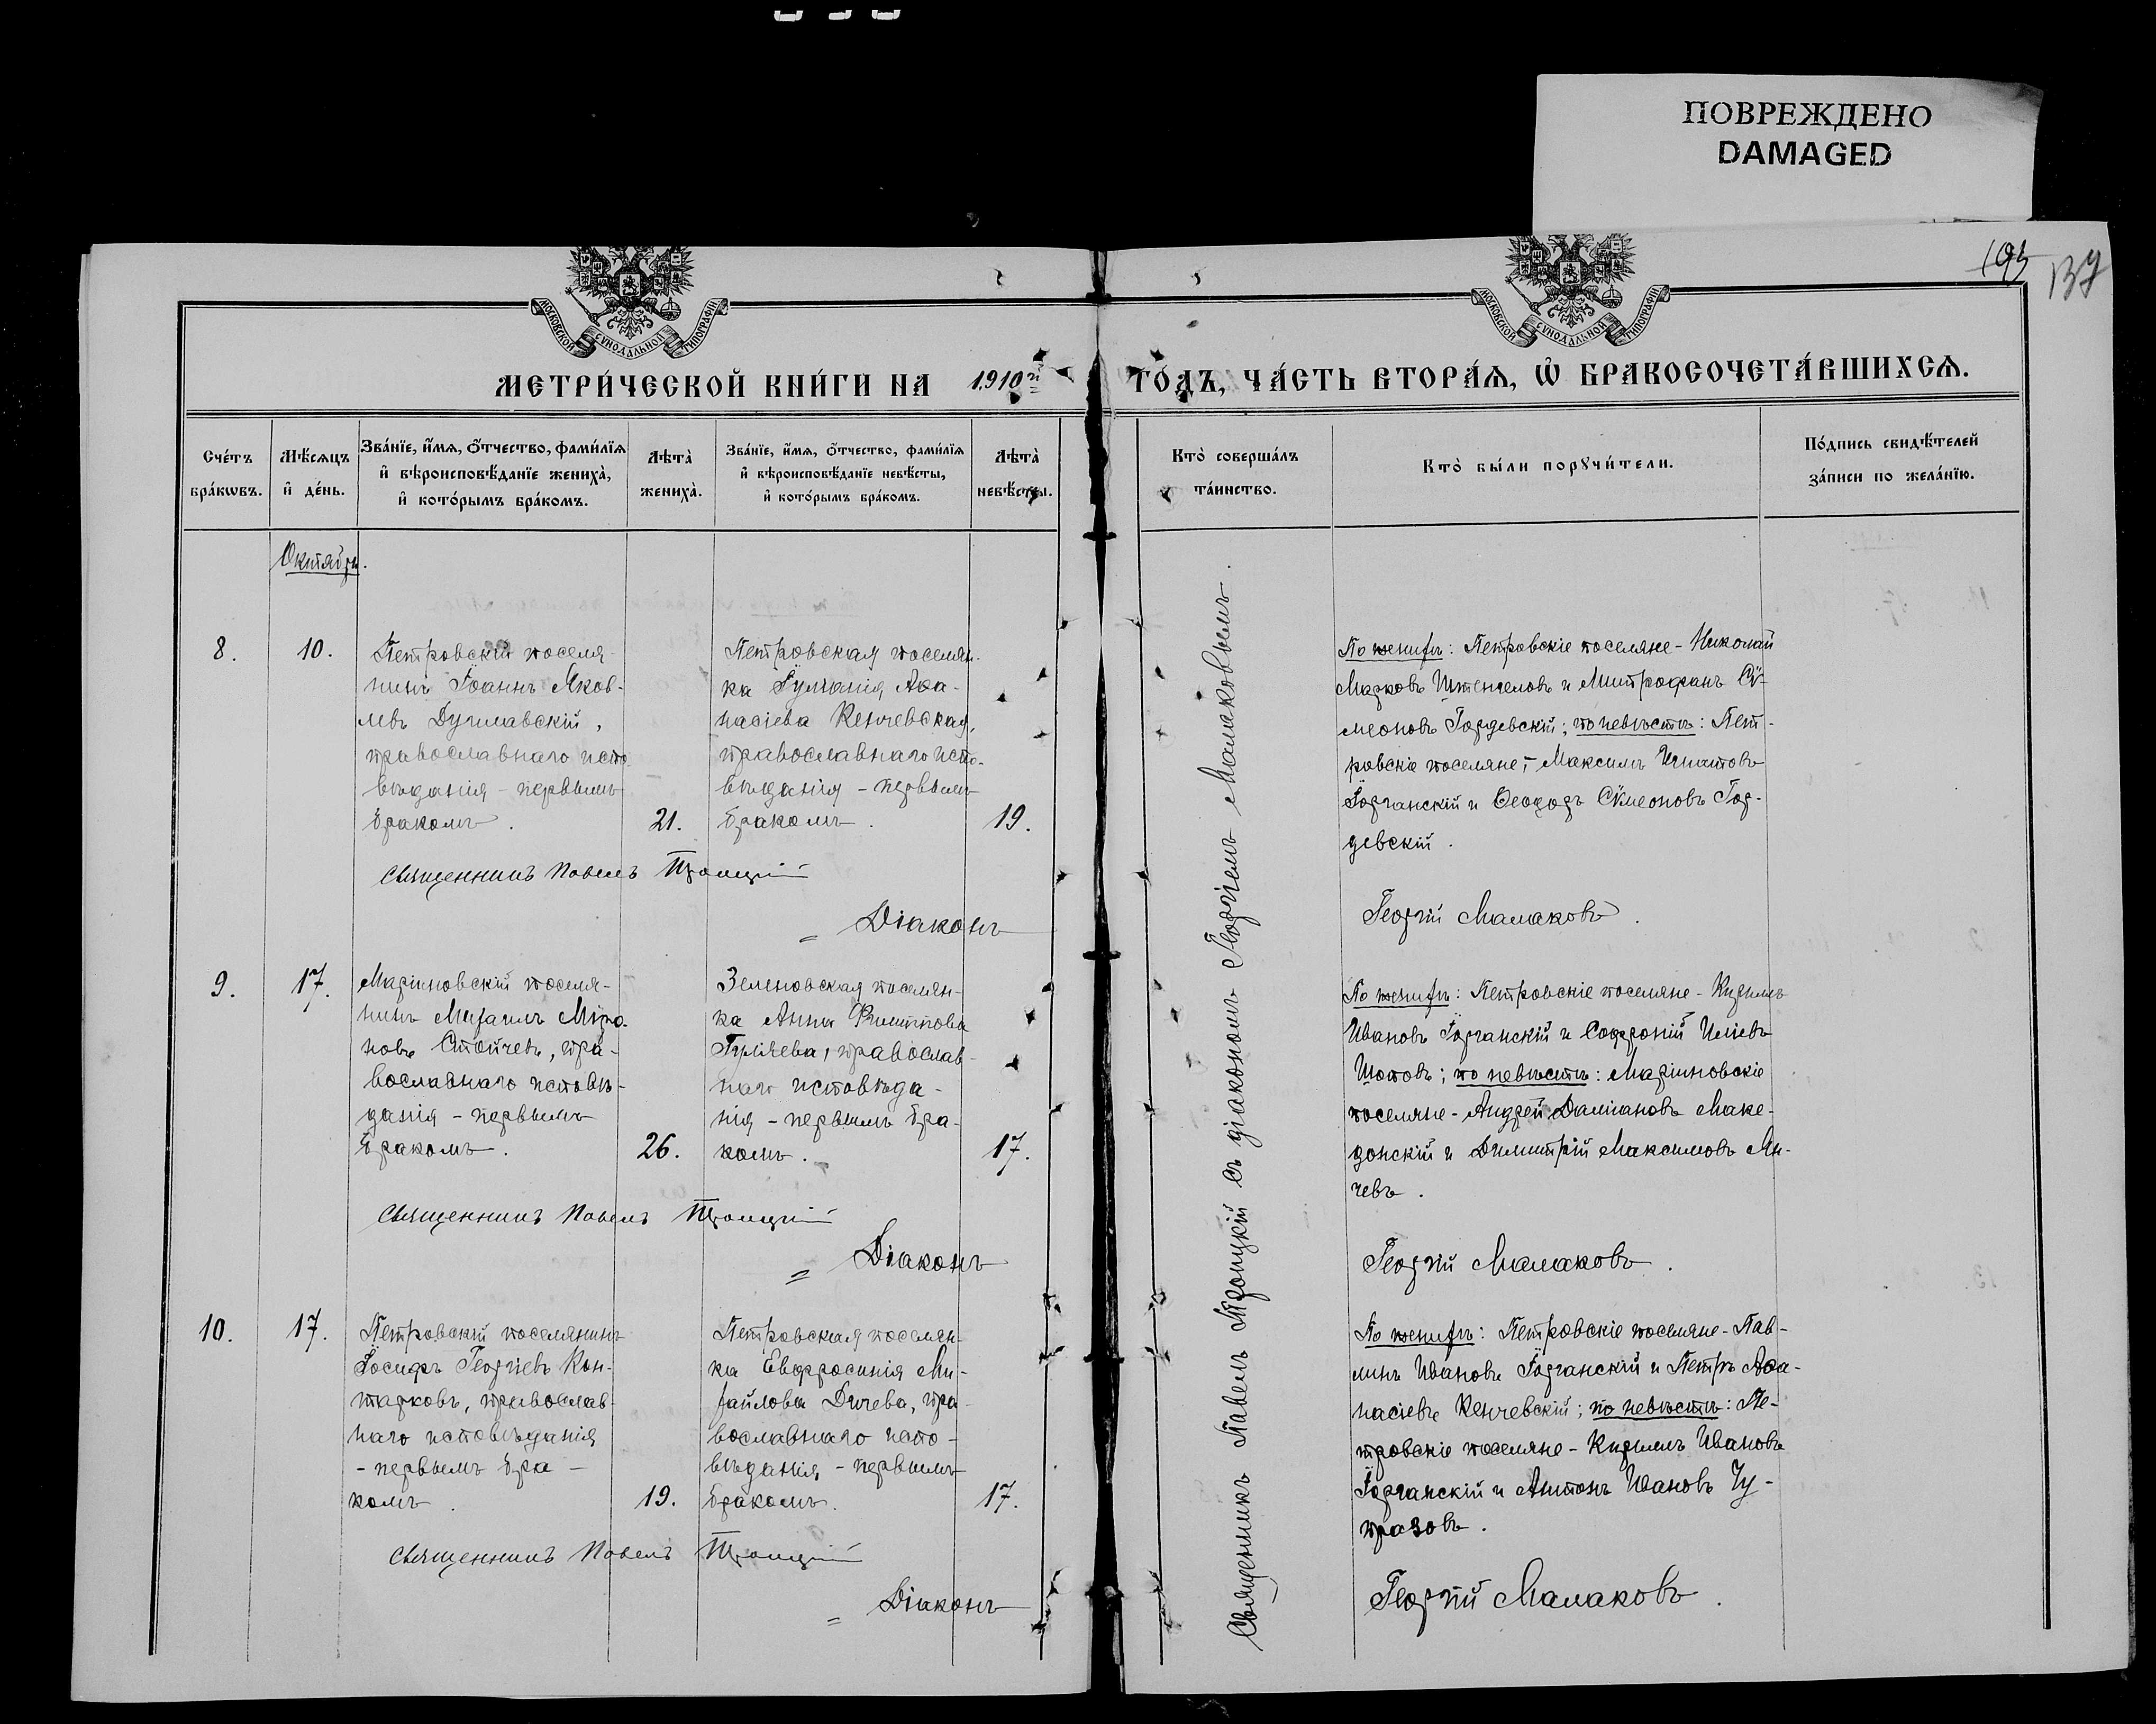 ПОВРЕЖДЕНО
DAMAGED
193
137
МОСКОВСКОЙ СѴНОДАЛЬНОЙ ТИПОГРАФІИ
МОСКОВСКОЙ СѴНОДАЛЬНОЙ ТИПОГРАФІИ
МЕТРИ́ЧЕСКОЙ КНИ́ГИ НА 1910й ГО́ДЪ, ЧА́СТЬ ВТОРА́Ѧ, Ѡ҆ БРАКОСОЧЕТА́ВШИХСѦ.
Сче́тъ бра́кѡвъ.
Мѣ́сѧцъ и҆ де́нь.
Зва́нїе, и҆́мѧ, ѻ҆́тчество, фами́лїѧ
и҆ вѣроисповѣ́данїе жениха̀,
и҆ кото́рымъ бра́комъ.
Лѣта̀ жениха̀.
Зва́нїе, и҆́мѧ, ѻ҆́тчество, фами́лїѧ
и҆ вѣроисповѣ́данїе невѣ́сты,
и҆ кото́рымъ бра́комъ.
Лѣта̀ невѣ́сты.
Кто̀ соверша́лъ та́инство.
Кто̀ бы́ли порꙋчи́тели.
По́дпись свидѣ́телей
за́писи по жела́нїю.
Октябрь.
8.
10.
Петровскій поселя-
нинъ Іоаннъ Яков-
левъ Душлавскій,
православнаго испо-
вѣданія - первымъ
бракомъ.
21.
Петровская поселян-
ка Іуліанія Аѳа-
насіева Кенчевская,
православнаго испо-
вѣданія - первымъ
бракомъ.
19.
Священникъ Павелъ Троицкій
" Діаконъ
Священникъ Павелъ Троицкій съ діакономъ Георгіемъ Малаковымъ.
По женихѣ: Петровскіе поселяне - Николай
Марковъ Штенгеловъ и Митрофанъ Сѵ-
меоновъ Гордевскій; по невѣстѣ: Пет-
ровскіе поселяне, - Максимъ Игнатовъ
Іорганскій и Ѳеодоръ Сѵмеоновъ Гор-
девскій.
Георгій Малаковъ.
9.
17.
Маріиновскій поселя-
нинъ Михаилъ Міро-
новъ Стойчевъ, пра-
вославнаго исповѣ-
данія - первымъ
бракомъ.
26.
Зеленовская поселян-
ка Анна Филиппова
Гуліева, православ-
наго исповѣда-
нія - первымъ бра-
комъ.
17.
Священникъ Павелъ Троицкій
" Діаконъ
По женихѣ: Петровскіе поселяне - Кириллъ
Ивановъ Іорганскій и Софроній Иліевъ
Шоповъ; по невѣстѣ: Маріиновскіе
поселяне - Андрей Даміановъ Маке-
донскій и Димитрій Максимовъ Ян-
чевъ.
Георгій Малаковъ.
10.
17.
Петровскій поселянинъ
Іосифъ Георгіевъ Кон-
тарковъ, православ-
наго исповѣданія
- первымъ бра-
комъ.
19.
Петровская поселян-
ка Евфросинія Ми-
хайлова Дичева, пра-
вославнаго испо-
вѣданія - первымъ
бракомъ.
17.
Священникъ Павелъ Троицкій
" Діаконъ
По женихѣ: Петровскіе поселяне - Пав-
линъ Ивановъ Іорганскій и Петръ Аѳа-
насіевъ Кенчевскій; по невѣстѣ: Пе-
тровскіе поселяне - Кириллъ Ивановъ
Іорганскій и Антонъ Ивановъ Чу-
празовъ.
Георгій Малаковъ.